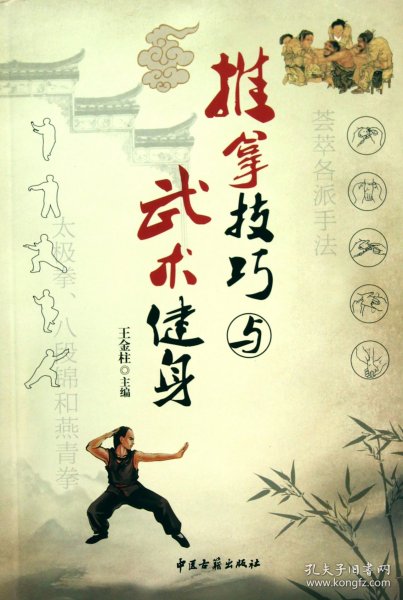 推拿技巧与
武术健身
王金柱◎主编
荟萃各派手法
太极拳、八段锦和燕青拳
中医古籍出版社
孔夫子旧书网
www.kongfz.com